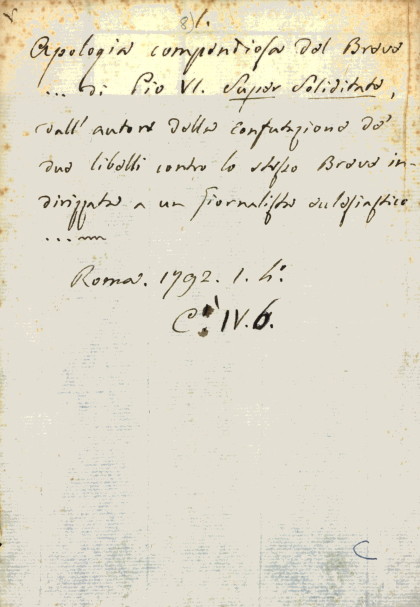 8/.
Apologia compendiosa del Breve
... di Pio VI. Super Soliditate,
dall' autore della confutazione de'
due libelli contro lo stesso Breve in-
dirizzata a un Giornalista eclesiastico
...
Roma. 1792. 1. h.
C. IV. 6.
C